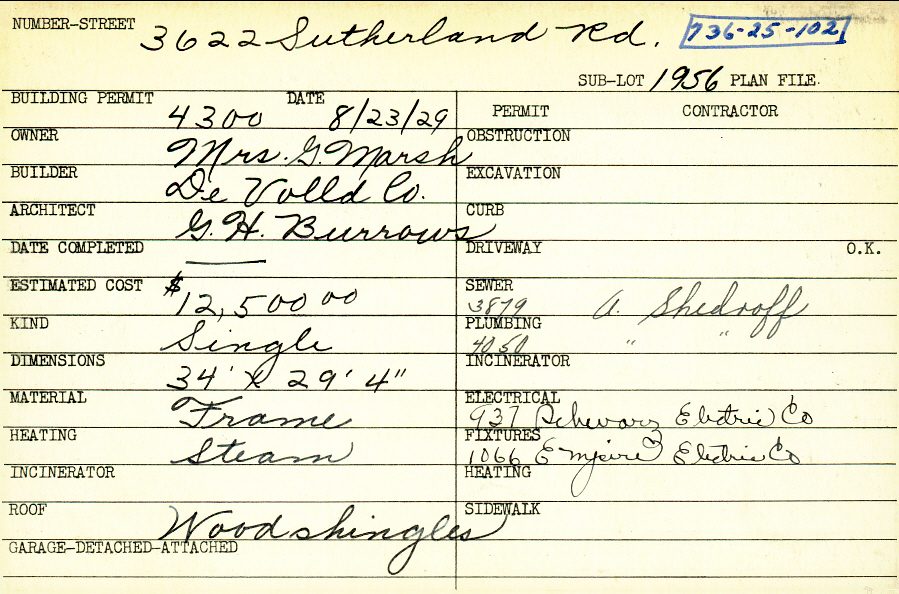 NUMBER-STREET 3622 Sutherland Rd. 736-25-102
SUB-LOT 1956 PLAN FILE.
BUILDING PERMIT 4300 DATE 8/23/29 PERMIT CONTRACTOR
OWNER Mrs. G. Marsh OBSTRUCTION
BUILDER De Volld Co. EXCAVATION
ARCHITECT G. H. Burrows CURB
DATE COMPLETED —— DRIVEWAY O.K.
ESTIMATED COST $12,500 00 SEWER 3879 A. Shedroff
KIND Single PLUMBING 4050 " "
DIMENSIONS 34' X 29' 4" INCINERATOR
MATERIAL Frame ELECTRICAL 937 Schwarz Electric Co
HEATING Steam FIXTURES 1066 Empire Electric Co
INCINERATOR HEATING
ROOF Wood shingles SIDEWALK
GARAGE-DETACHED-ATTACHED